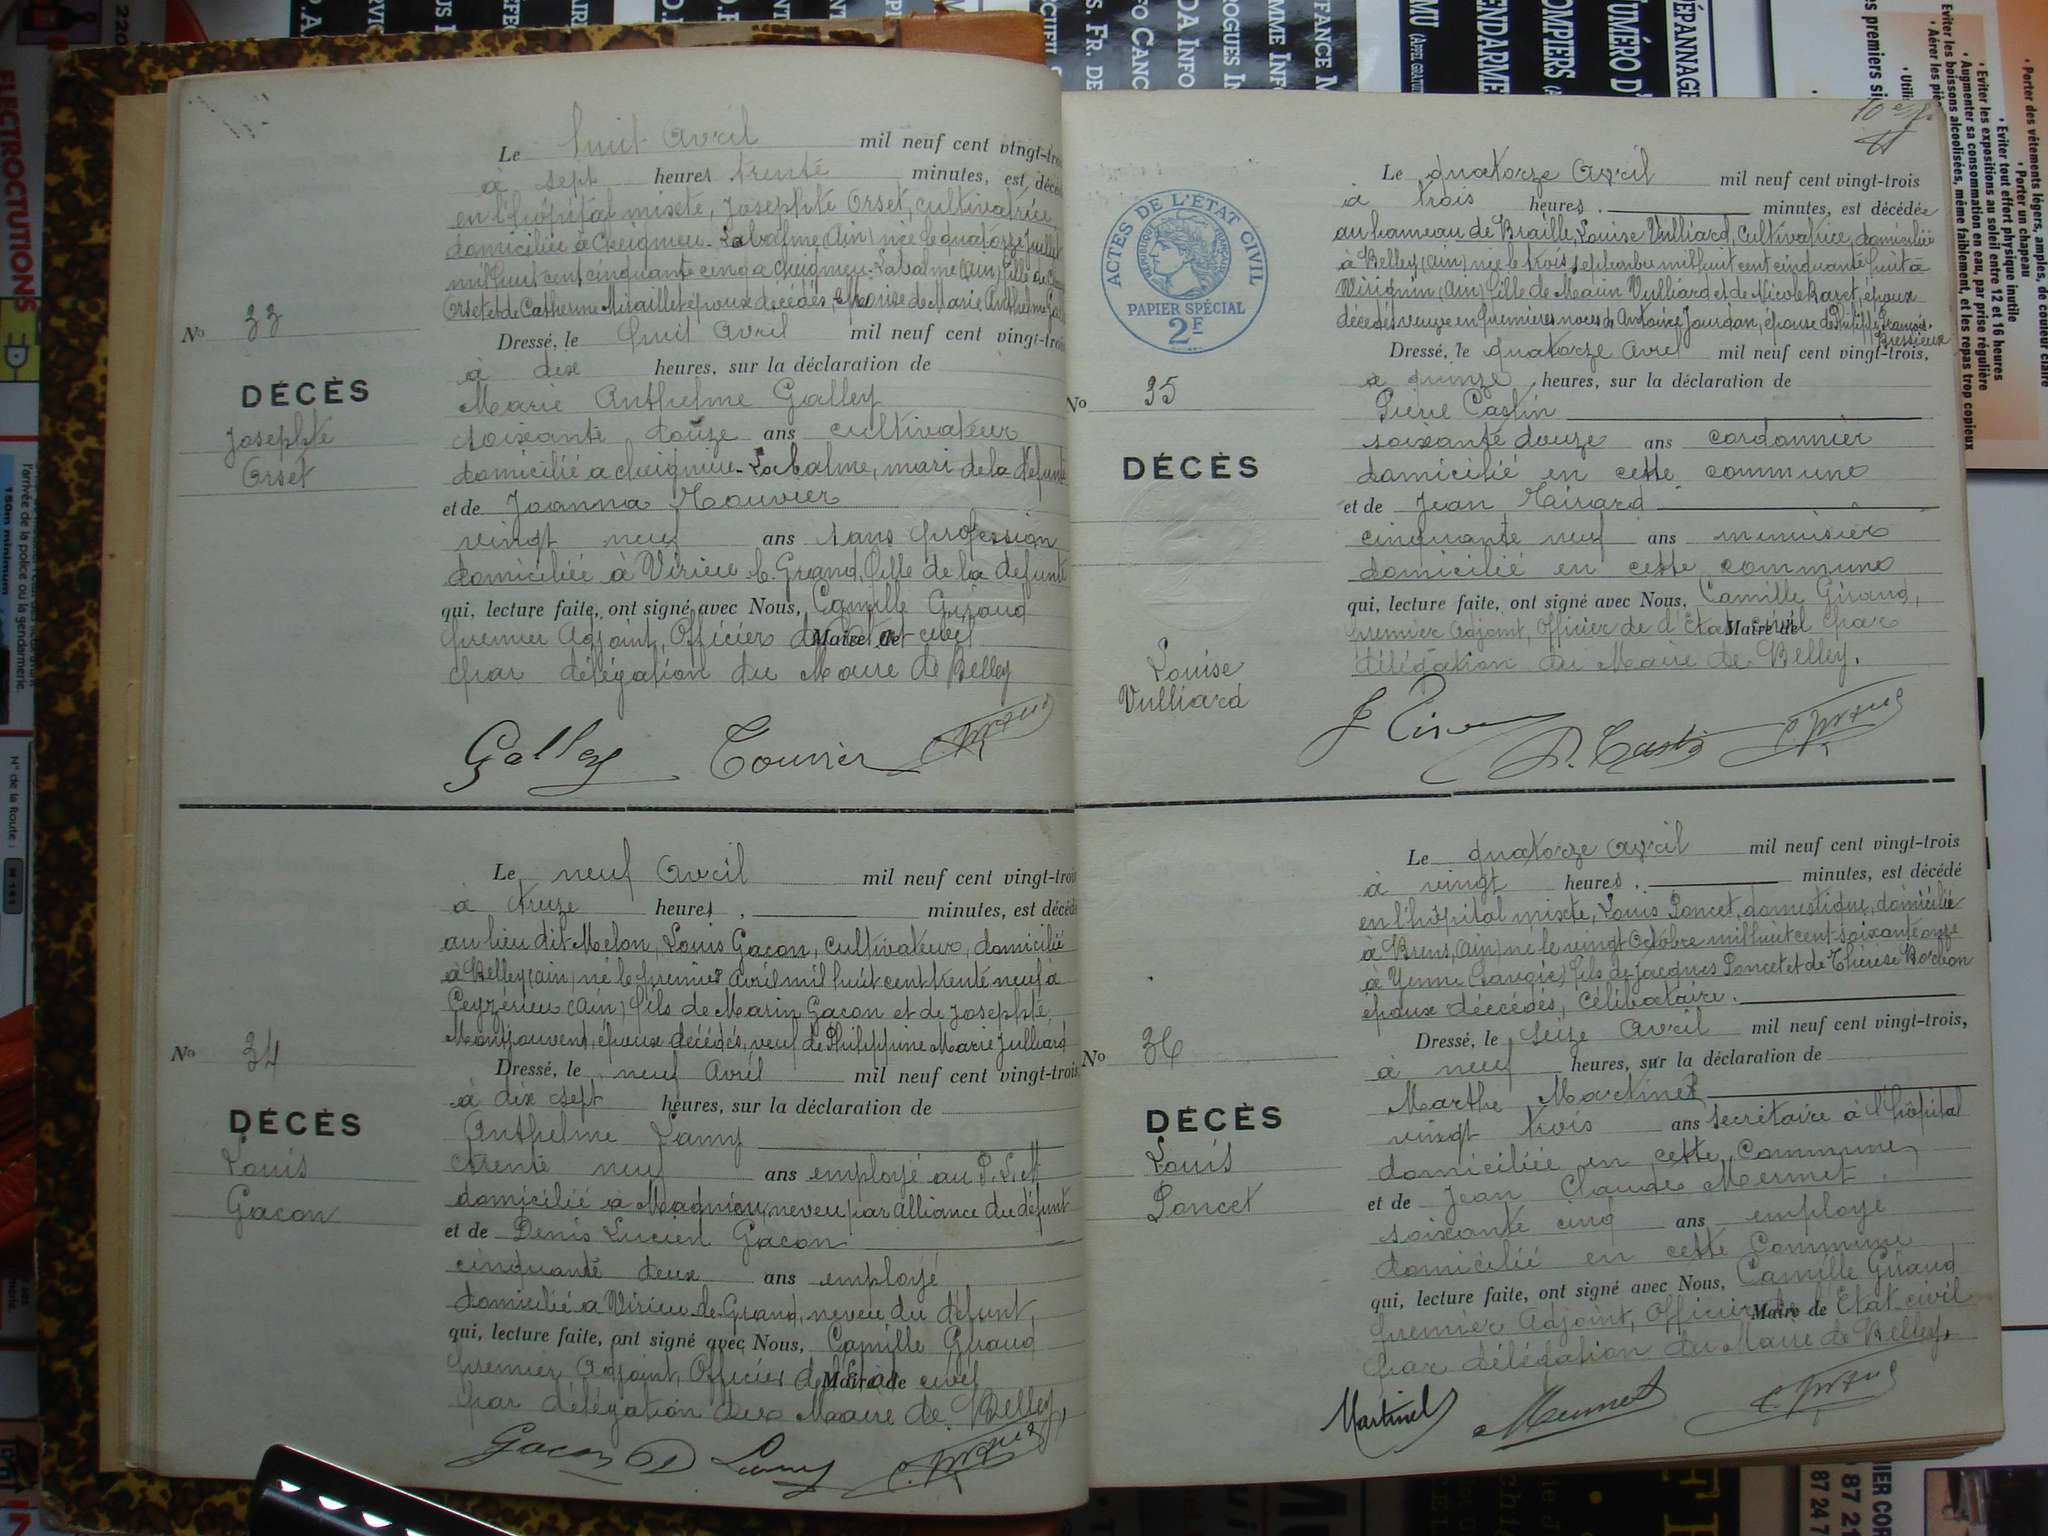 Le huit Avril mil neuf cent vingt-trois
à sept heures trente minutes, est décédée
en l'hôpital mixte, Josephte Orset, cultivatrice
domiciliée à Cheignieu-Labalme (Ain) née le quatorze Juillet
mil huit cent cinquante cinq à Cheignieu-Labalme (Ain) fille de
Orset et de Catherine Miraillet époux décédés, épouse de Marie Anthelme
No 33
Dressé, le huit Avril mil neuf cent vingt-trois
à dix heures, sur la déclaration de
DÉCÈS
Marie Anthelme Galley
Josephte
Orset
soixante douze ans cultivateur
domicilié à Cheignieu-Labalme, mari de la défunte
et de Joanna Touvier
vingt neuf ans sans profession
domiciliée à Virieu le Grand, fille de la défunte
qui, lecture faite, ont signé avec Nous, Camille Giraud
premier Adjoint, Officier de l'Etat civil
Maire de
par délégation du Maire de Belley
Galley Touvier
Le neuf Avril mil neuf cent vingt-trois
à treize heures, minutes, est décédé
au lieu dit Melon, Louis Gacon, cultivateur, domicilié
à Belley (Ain) né le premier Avril mil huit cent trente neuf à
Ceyzérieu (Ain) fils de Marin Gacon et de Josephte
Montjouvent, époux décédés, veuf de Philippine Marie Julliard
No 34
Dressé, le neuf Avril mil neuf cent vingt-trois
à dix sept heures, sur la déclaration de
DÉCÈS
Louis
Gacon
Anthelme Lamy
trente neuf ans employé au P.L.M
domicilié à Magnieu, neveu par alliance du défunt
et de Denis Lucien Gacon
cinquante deux ans employé
domicilié à Virieu le Grand, neveu du défunt,
qui, lecture faite, ont signé avec Nous, Camille Giraud
premier Adjoint, Officier de l'Etat civil
Maire de
par délégation du Maire de Belley,
Gacon D Lamy
ACTES DE L'ÉTAT CIVIL
RÉPUBLIQUE FRANÇAISE
PAPIER SPÉCIAL
2F
Le quatorze Avril mil neuf cent vingt-trois
à trois heures, minutes, est décédée
au hameau de Braille, Louise Vulliard, Cultivatrice, domiciliée
à Belley (Ain) née le trois septembre mil huit cent cinquante huit à
Virignin (Ain) fille de Marin Vulliard et de Nicole Baret, époux
décédés veuve en premières noces de Antoine Jourdan, épouse de Philippe François
Bressieux
No 35
Dressé, le quatorze Avril mil neuf cent vingt-trois,
à quinze heures, sur la déclaration de
Pierre Castin
DÉCÈS
Louise
Vulliard
soixante douze ans cordonnier
domicilié en cette commune
et de Jean Tirard
cinquante neuf ans menuisier
domicilié en cette commune
qui, lecture faite, ont signé avec Nous, Camille Giraud,
premier Adjoint, Officier de l'Etat civil par
Maire de
délégation du Maire de Belley.
Le quatorze Avril mil neuf cent vingt-trois
à vingt heures, minutes, est décédé
en l'hôpital mixte, Louis Poncet, domestique, domicilié
à Brens (Ain) né le vingt Octobre mil huit cent soixante onze
à Yenne (Savoie) fils de Jacques Poncet et de Thérèse Borbon
époux décédés, célibataire.
No 36
Dressé, le seize Avril mil neuf cent vingt-trois,
à neuf heures, sur la déclaration de
DÉCÈS
Louis
Poncet
Marthe Martinet
vingt trois ans secrétaire à l'hôpital
domiciliée en cette Commune
et de Jean Claude Mermet
soixante cinq ans employé
domicilié en cette Commune
qui, lecture faite, ont signé avec Nous, Camille Giraud
premier Adjoint, Officier de l'Etat civil
Maire de
par délégation du Maire de Belley,
Martinet Mermet
ELECTROCUTIONS
l'arrivée de la police ou la gendarmerie.
150m minimum
N° de la Route :
NUMÉRO D'
DÉPANNAGE
POMPIERS
• Porter des vêtements légers, amples, de couleur claire
• Porter un chapeau
• Eviter tout effort physique inutile
• Eviter les expositions au soleil entre 12 et 16 heures
• Augmenter sa consommation en eau, par prise régulière
Eviter les boissons alcoolisées, même faiblement, et les repas trop copieux